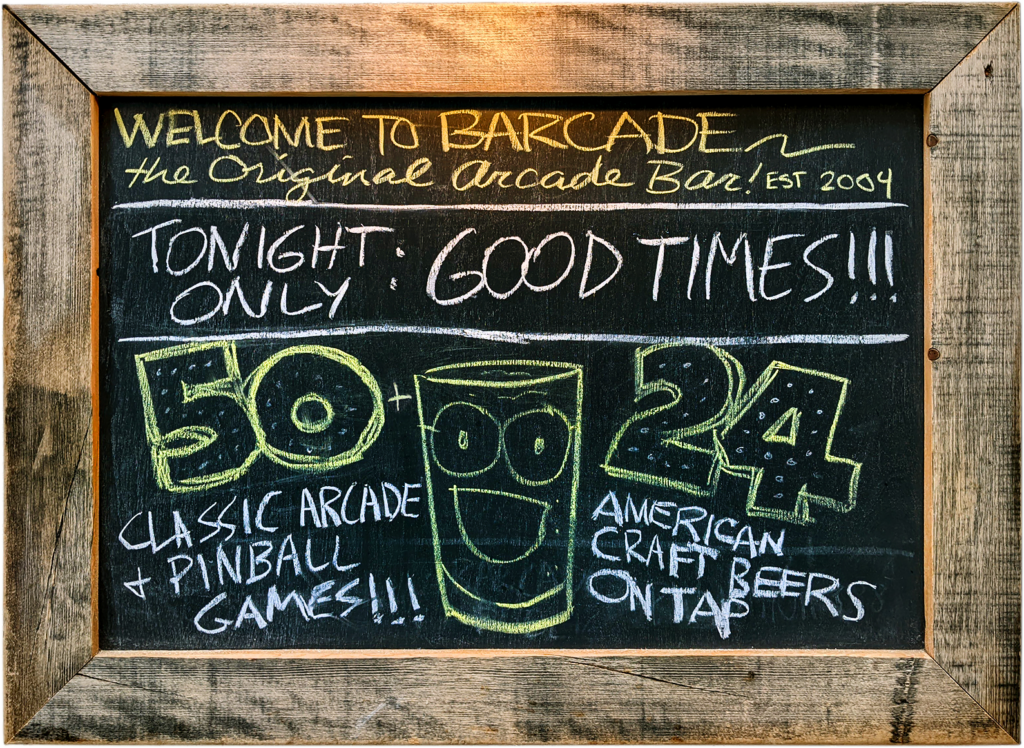 WELCOME TO BARCADE
the Original Arcade Bar! EST 2004
TONIGHT ONLY : GOOD TIMES!!!
50 +
CLASSIC ARCADE
+ PINBALL
GAMES!!!
24
AMERICAN
CRAFT BEERS
ON TAP